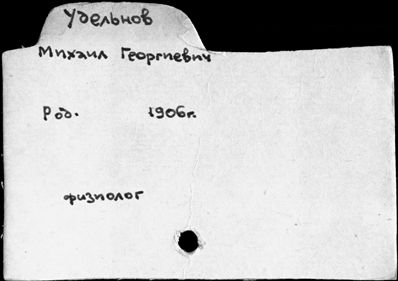 Удельнов
Михаил Георгиевич
Род. 1906г.
физиолог